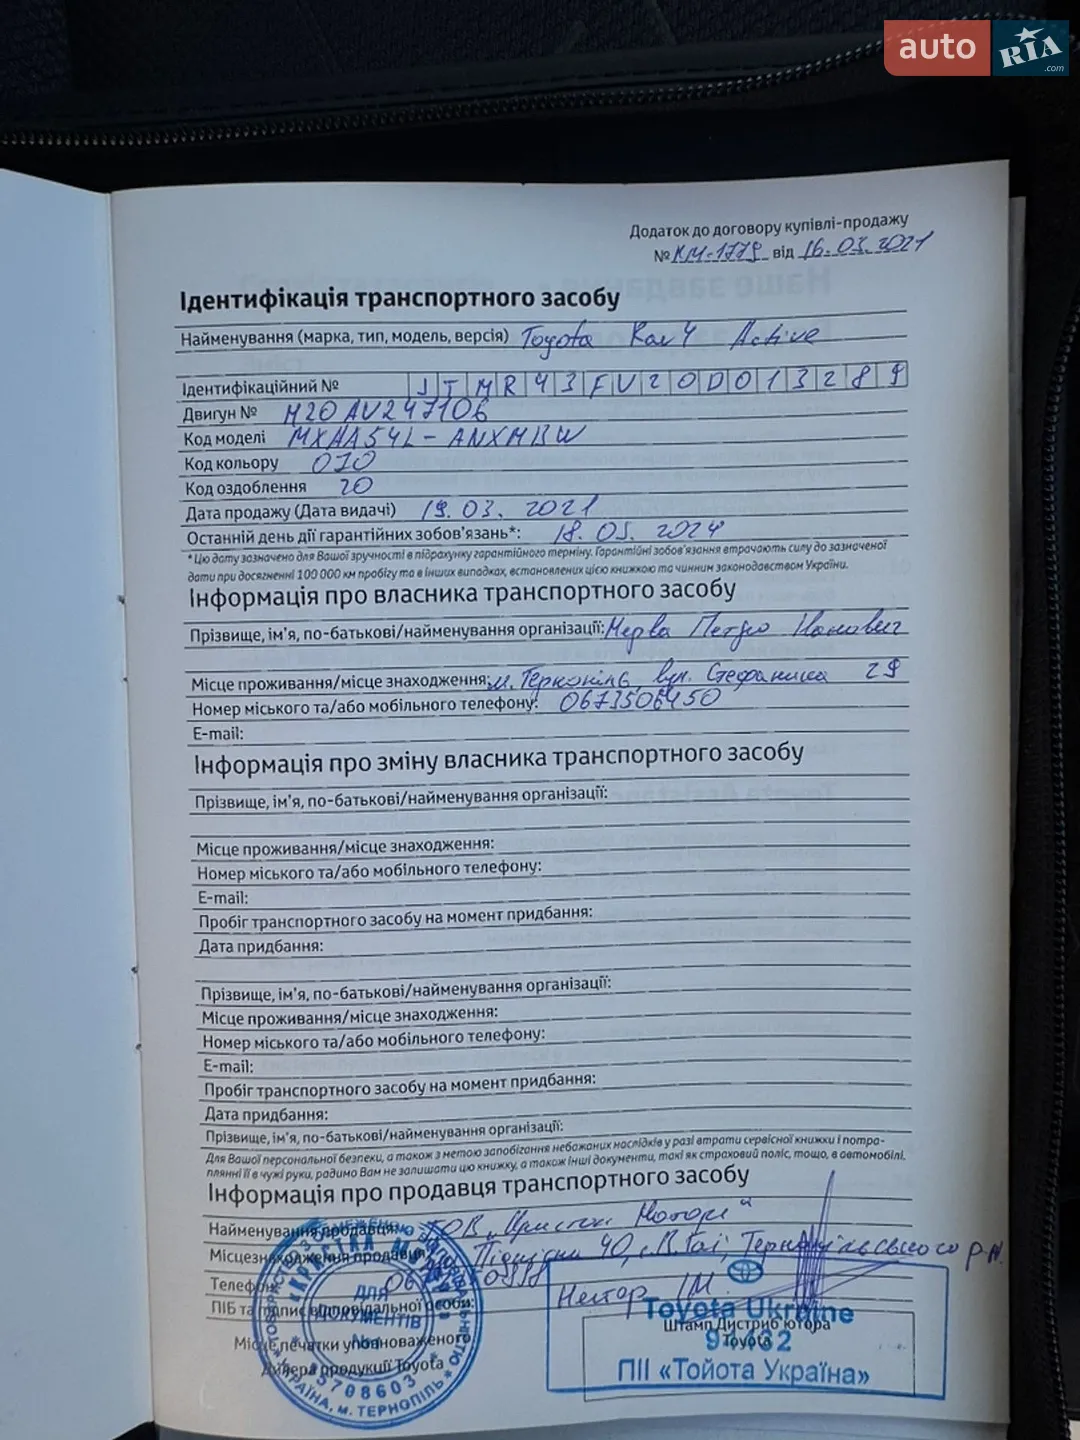 auto RIA .com
Додаток до договору купівлі-продажу
№ КМ-1779 від 16.03.2021
Ідентифікація транспортного засобу
Найменування (марка, тип, модель, версія) Toyota Rav4 Active
Ідентифікаційний № JTMR43FV20D013289
Двигун № M20AV247106
Код моделі MXAA54L-ANXMBW
Код кольору 070
Код оздоблення 20
Дата продажу (Дата видачі) 19.03.2021
Останній день дії гарантійних зобов'язань*: 18.03.2024
* Цю дату зазначено для Вашої зручності в підрахунку гарантійного терміну. Гарантійні зобов'язання втрачають силу до зазначеної
дати при досягненні 100 000 км пробігу та в інших випадках, встановлених цією книжкою та чинним законодавством України.
Інформація про власника транспортного засобу
Прізвище, ім'я, по-батькові/найменування організації: Мерва Петро Іванович
Місце проживання/місце знаходження: м. Тернопіль, вул. Стефаника 29
Номер міського та/або мобільного телефону: 0673506450
E-mail:
Інформація про зміну власника транспортного засобу
Прізвище, ім'я, по-батькові/найменування організації:
Місце проживання/місце знаходження:
Номер міського та/або мобільного телефону:
E-mail:
Пробіг транспортного засобу на момент придбання:
Дата придбання:
Прізвище, ім'я, по-батькові/найменування організації:
Місце проживання/місце знаходження:
Номер міського та/або мобільного телефону:
E-mail:
Пробіг транспортного засобу на момент придбання:
Дата придбання:
Прізвище, ім'я, по-батькові/найменування організації:
Для Вашої персональної безпеки, а також з метою запобігання небажаних наслідків у разі втрати сервісної книжки і потра-
плянні її в чужі руки, радимо Вам не залишати цю книжку, а також інші документи, такі як страховий поліс, тощо, в автомобілі.
Інформація про продавця транспортного засобу
Найменування продавця: ТОВ „Крістал Моторс"
Місцезнаходження продавця: Підгірна 40, с.В.Гаї, Тернопільського р-н.
Телефон: 067
ПІБ та підпис відповідальної особи: Нестор І.М.
ДЛЯ
ДОКУМЕНТІВ
УКРАЇНА, м. ТЕРНОПІЛЬ
Місце печатки уповноваженого
Дилера продукції Toyota
Toyota Ukraine
Штамп Дистриб'ютора
Toyota
ПІІ «Тойота Україна»